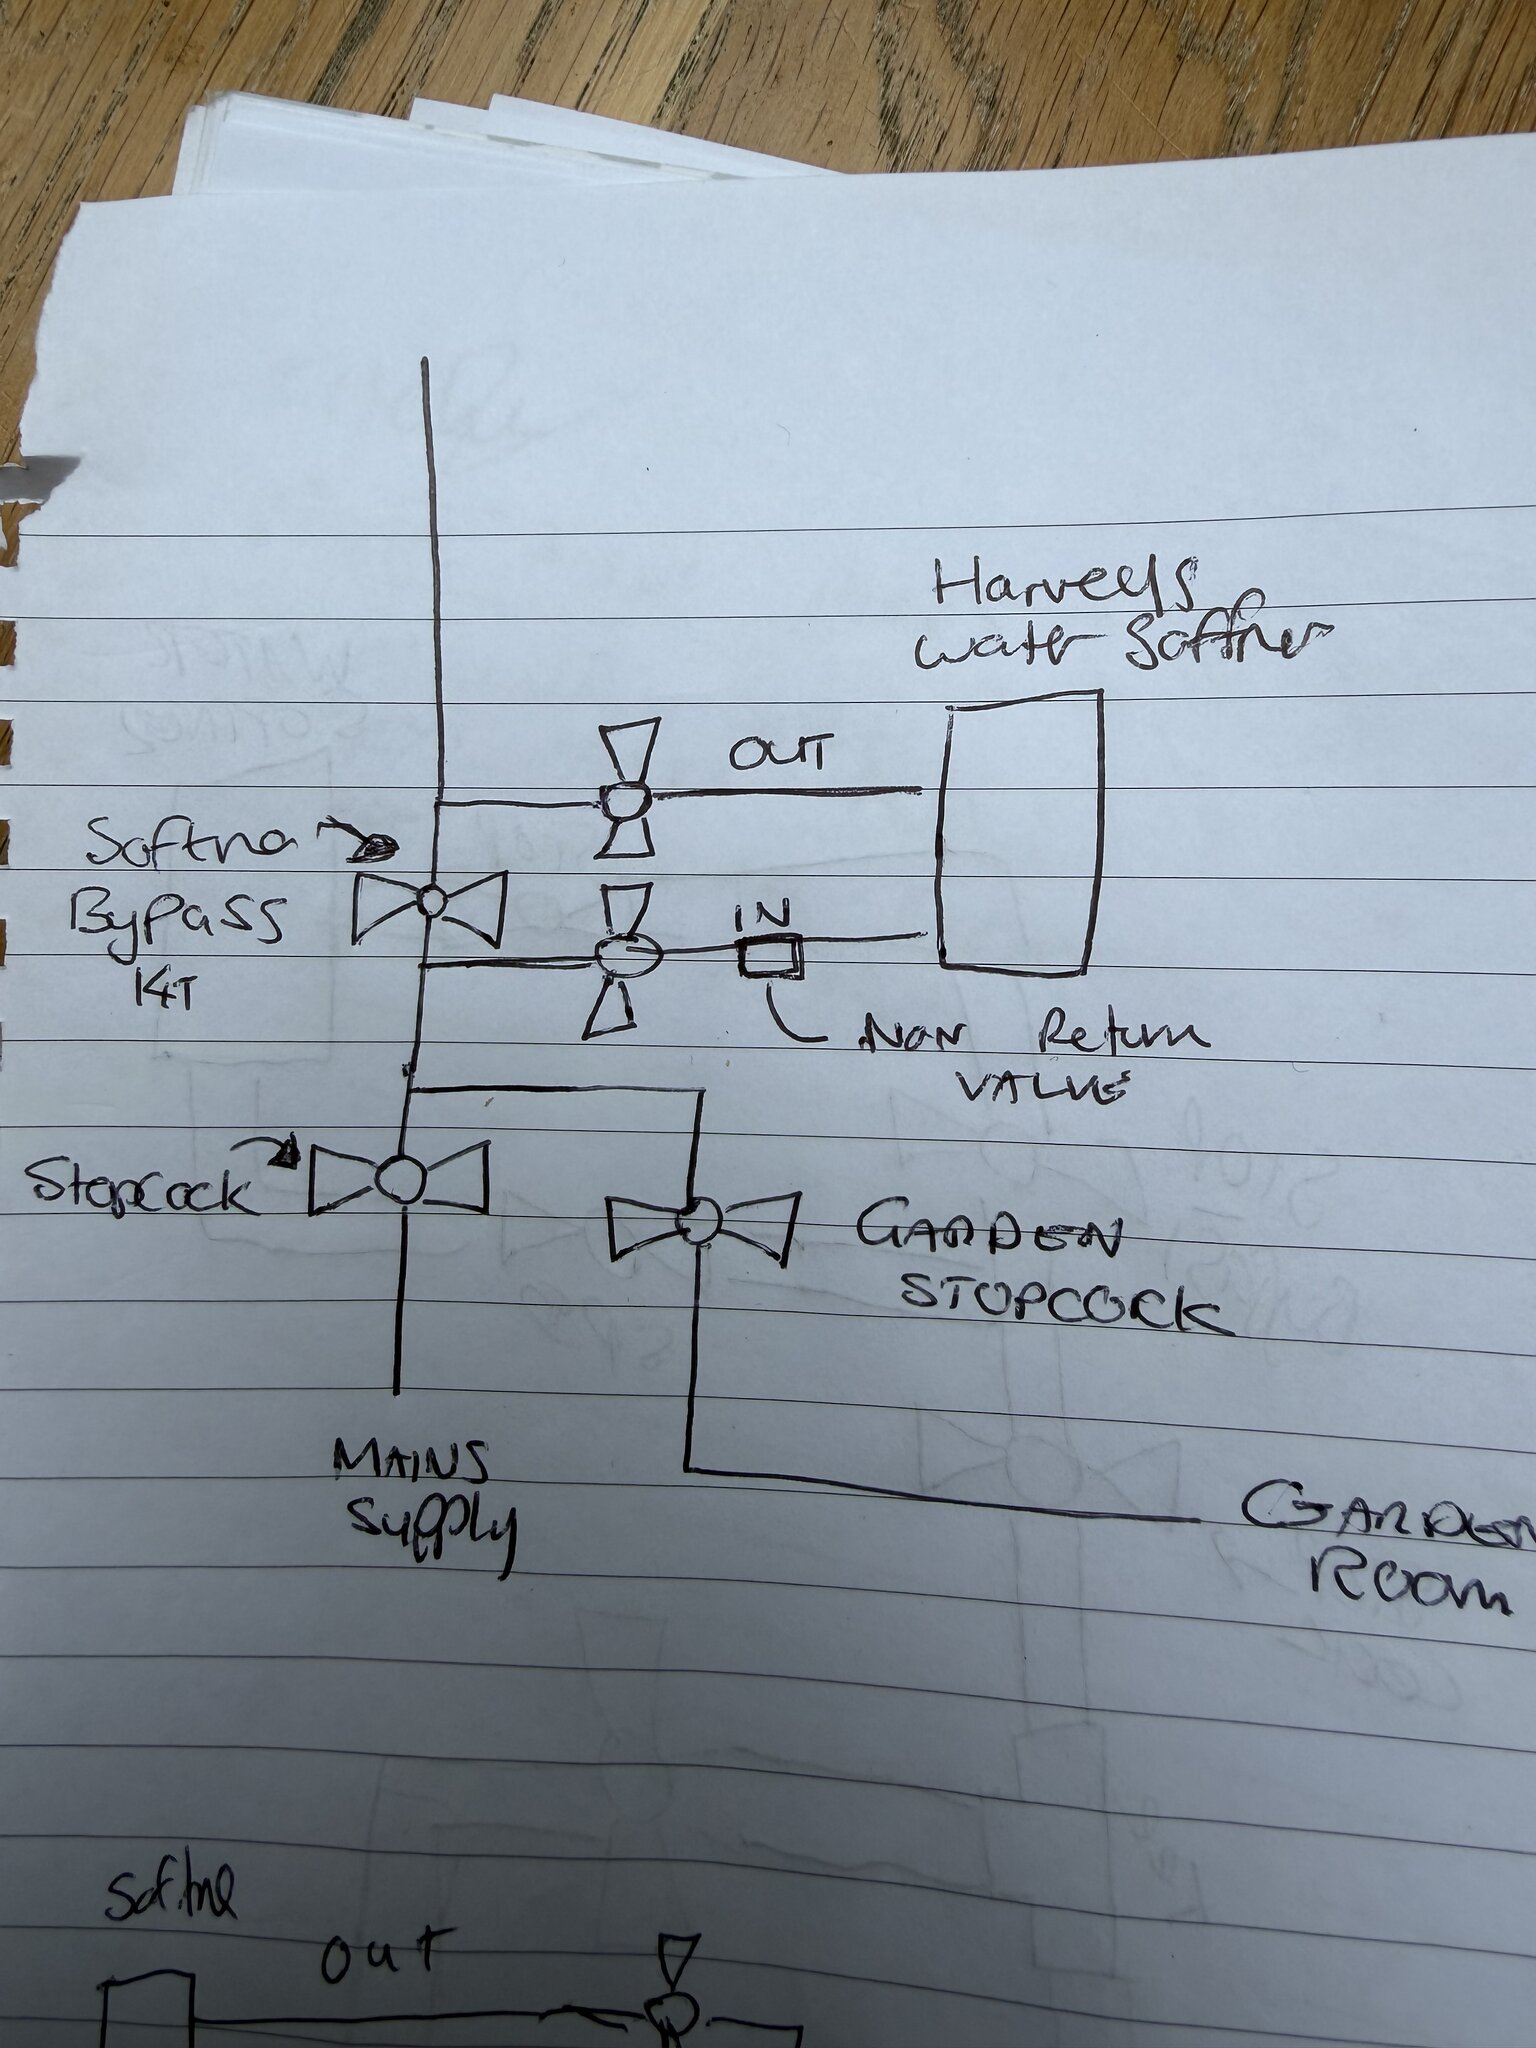 Harveys
water Softner
OUT
Softner
Bypass
KIT
IN
Non Return
VALVE
Stopcock
GARDEN
STOPCOCK
MAINS
Supply
GARDEN
ROOM
out